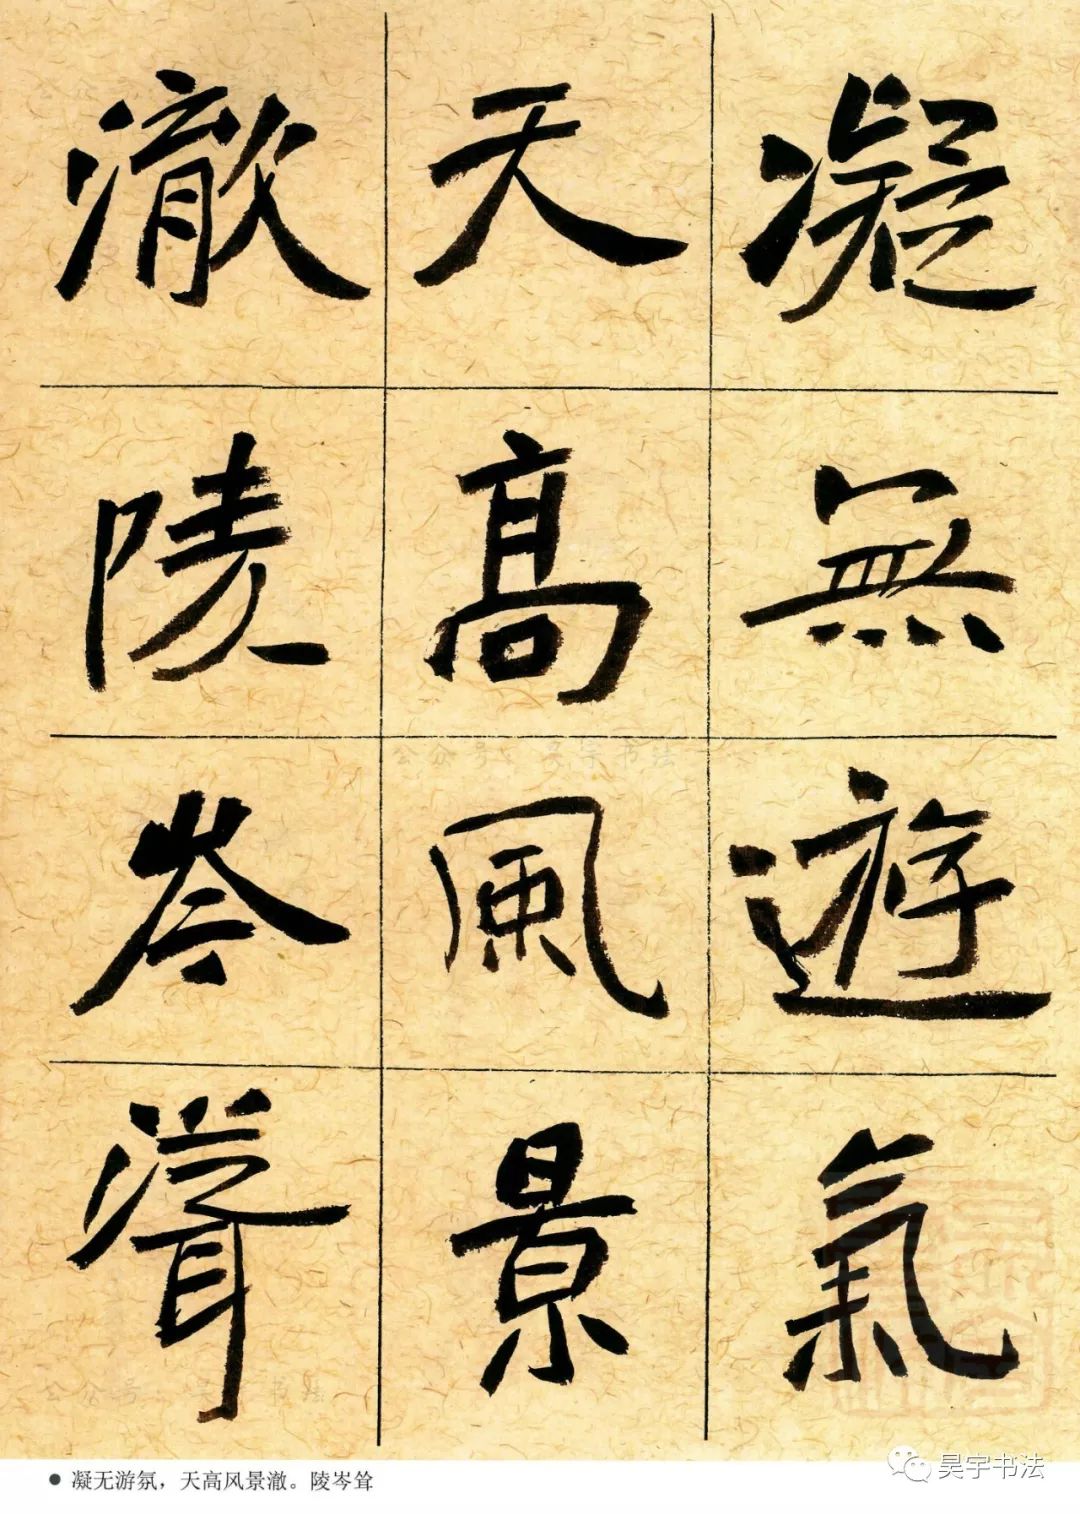 凝無遊氣
天高風景
澈陵岑聳
公众号 昊宇书法
● 凝无游氛，天高风景澈。陵岑耸
昊宇书法